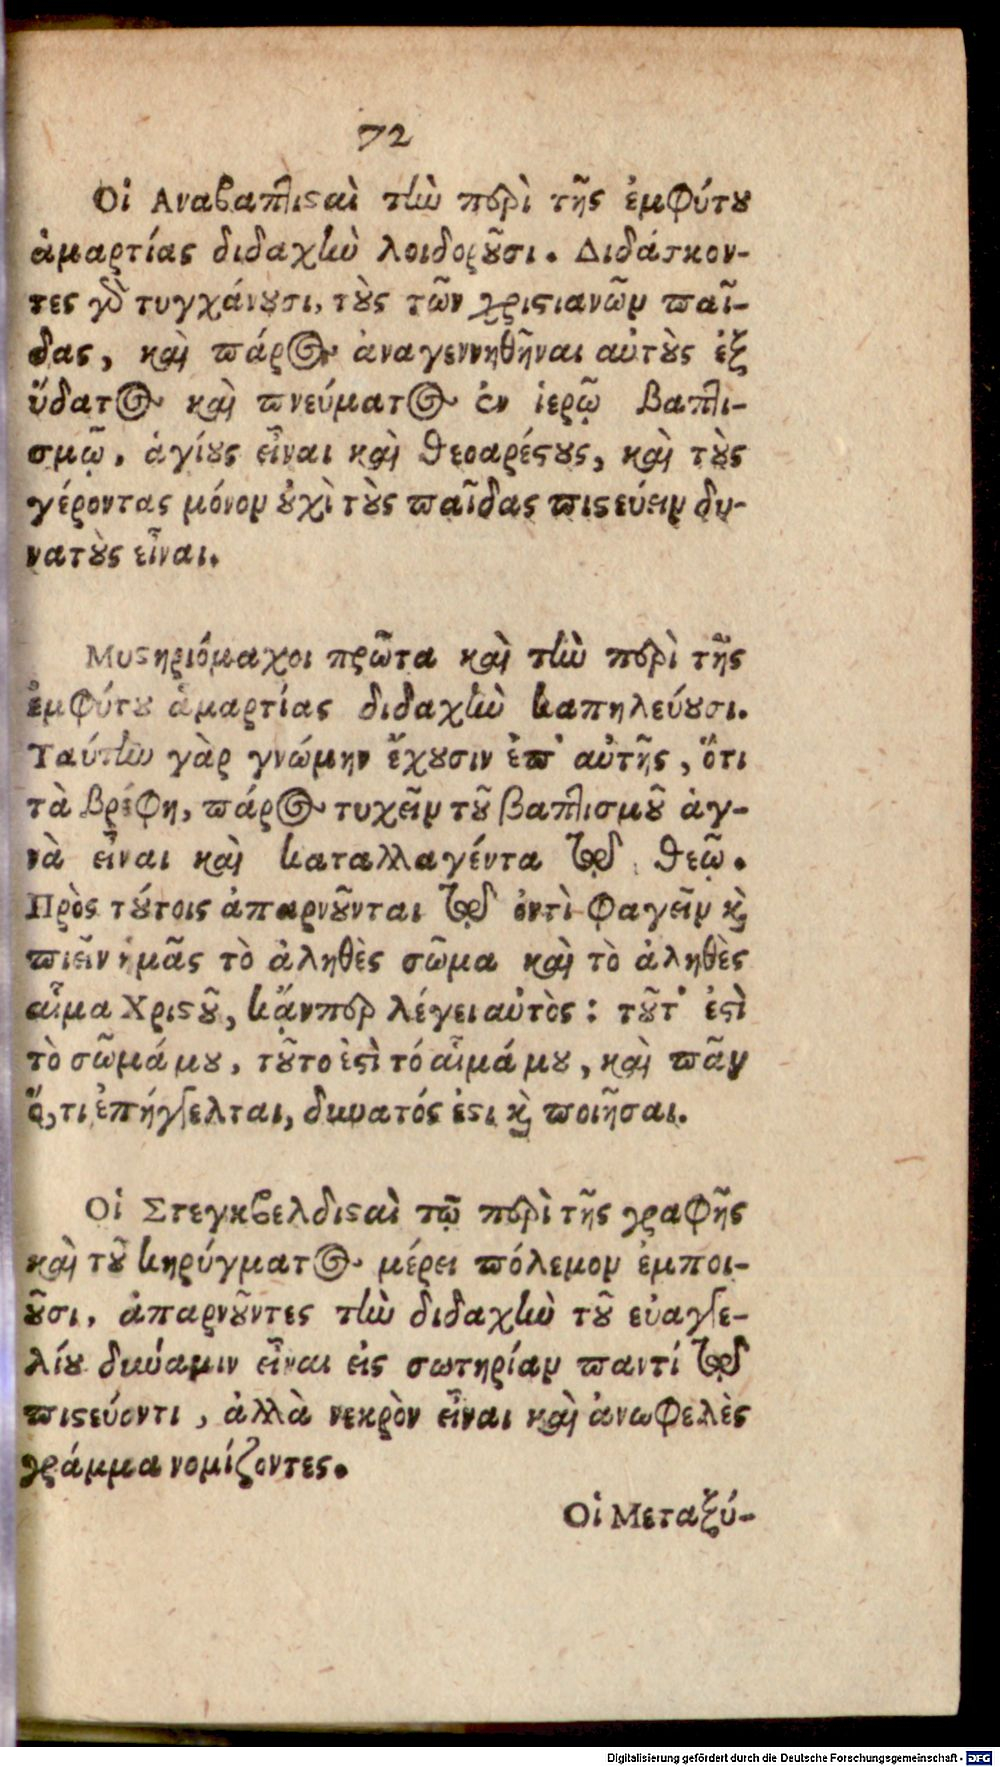 72
Οἱ Αναβαπτισαὶ τὴν περὶ τῆς ἐμφύτου
ἁμαρτίας διδαχὴν λοιδοροῦσι. Διδάσκον-
τες γὸ τυγχάνουσι, τοὺς τῶν χριστιανῶν παῖ-
δας, καὶ πάρος ἀναγεννηθῆναι αὐτοὺς ἐξ
ὕδατος καὶ πνεύματος ἐν ἱερῷ βαπτι-
σμῷ, ἁγίους εἶναι καὶ θεοαρέστους, καὶ τοὺς
γέροντας μόνον οὐχὶ τοὺς παῖδας πιστεύειν δυ-
νατοὺς εἶναι.
Μυστηριόμαχοι πρῶτα καὶ τὴν περὶ τῆς
ἐμφύτου ἁμαρτίας διδαχὴν καπηλεύουσι.
Ταύτην γὰρ γνώμην ἔχουσιν ἐπ' αὐτῆς, ὅτι
τὰ βρέφη, πάρος τυχεῖν τοῦ βαπτισμοῦ ἁγ-
νὰ εἶναι καὶ καταλλαγέντα τῷ θεῷ.
Πρὸς τούτοις ἀπαρνοῦνται τῷ ὀντὶ φαγεῖν καὶ
πιεῖν ἡμᾶς τὸ ἀληθὲς σῶμα καὶ τὸ ἀληθὲς
αἷμα Χριστοῦ, κἄνπερ λέγει αὐτὸς: τοῦτ' ἐστὶ
τὸ σῶμά μου, τοῦτο ἐστὶ τό αἷμά μου, καὶ πᾶν
ὅ,τι ἐπήγγελται, δυνατός ἐστι καὶ ποιῆσαι.
Οἱ Στεγκβελδισταὶ τῷ περὶ τῆς γραφῆς
καὶ τοῦ κηρύγματος μέρει πόλεμον ἐμποι-
οῦσι, ἀπαρνοῦντες τὴν διδαχὴν τοῦ εὐαγγε-
λίου δύναμιν εἶναι εἰς σωτηρίαν παντί τῷ
πιστεύοντι, ἀλλὰ νεκρὸν εἶναι καὶ ἀνωφελὲς
γράμμα νομίζοντες.
Οἱ Μεταξύ-
Digitalisierung gefördert durch die Deutsche Forschungsgemeinschaft - DFG